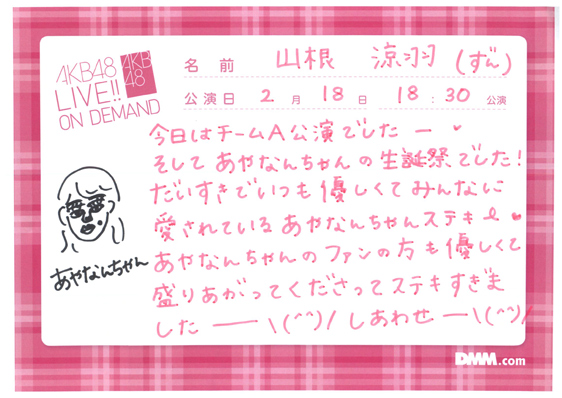 AKB48
LIVE!!
ON DEMAND
AKB
48
名前 山根 涼羽 (ずん)
公演日 2月18日 18:30 公演
今日はチームA公演でした ー ♥
そして あやなんちゃんの生誕祭でした!
だいすきでいつも優しくてみんなに
愛されているあやなんちゃんステキ ♥
あやなんちゃんのファンの方も優しくて
盛りあがってくださってステキすぎま
した ー \(^^)/ しあわせ ー \(^^)/
あやなんちゃん
DMM.com